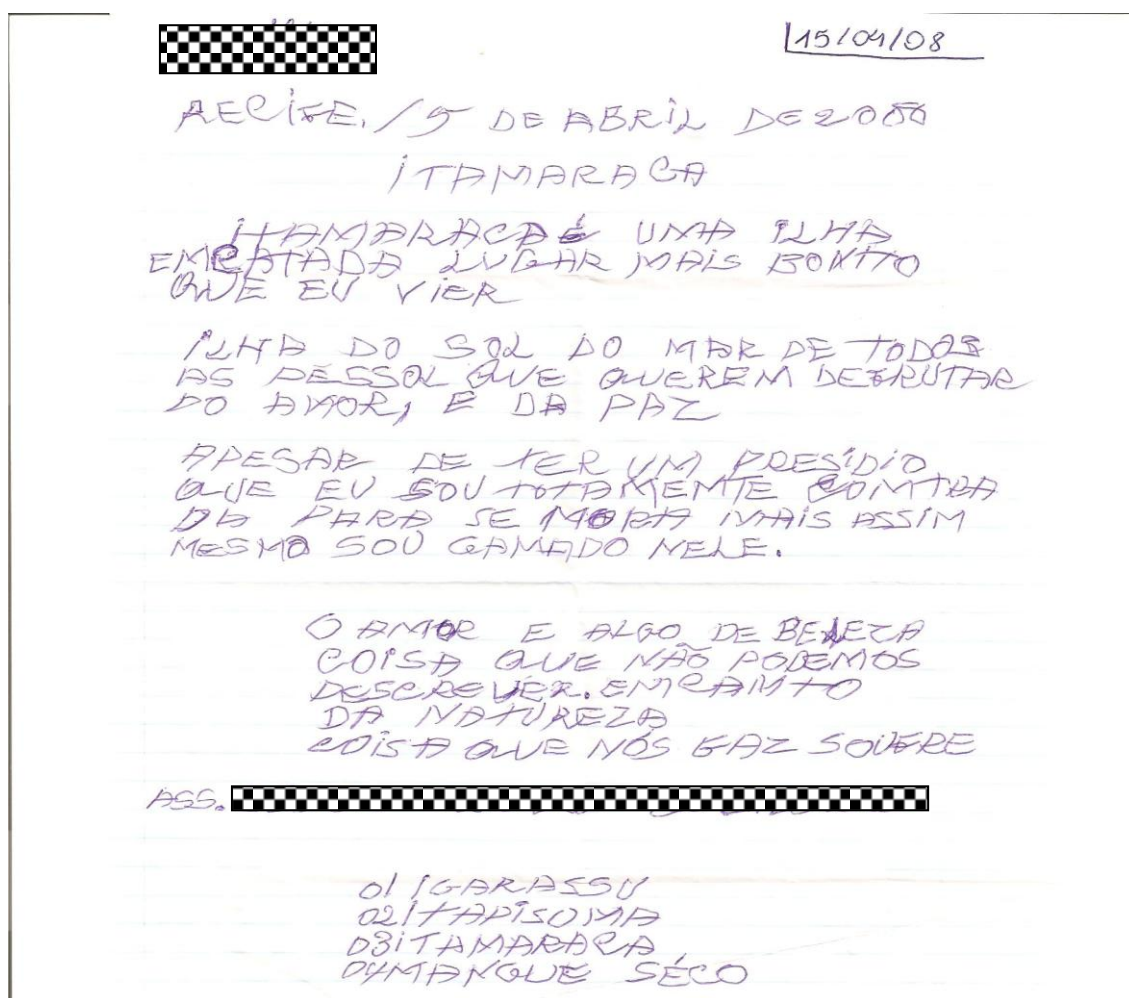 15/04/08
RECIFE, 15 DE ABRIL DE 2008
ITAMARACA
ITAMARACA É UMA ILHA
EMCATADA LUGAR MAIS BONITO
QUE EU VIER
ILHA DO SOL DO MAR DE TODOS
AS PESSOL QUE QUEREM DEFRUTAR
DO AMOR, E DA PAZ
APESAR DE TER UM PRESÍDIO
QUE EU SOU TOTAMENTE COMTRA
DA PARA SE MORA MAIS ASSIM
MESMO SOU GAMADO NELE.
O AMOR E ALGO DE BELEZA
COISA QUE NÃO PODEMOS
DESCREVER. EMCAMTO
DA NATUREZA
COISA QUE NÓS FAZ SOUFRE
ASS.
01 IGARASSU
02 ITAPISOMA
03 ITAMARACA
04 MANGUE SÉCO